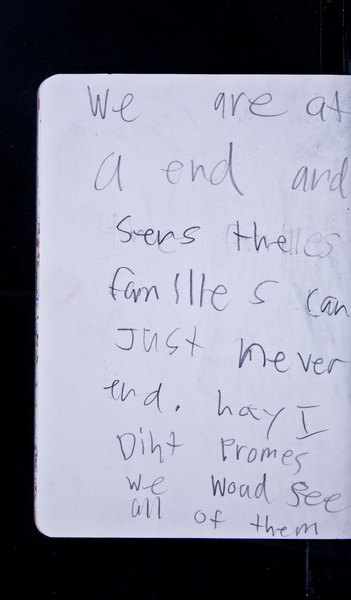 We are at
a end and
sens the
families can
Just never
end. hay I
Diht Promes
we woud see
all of them